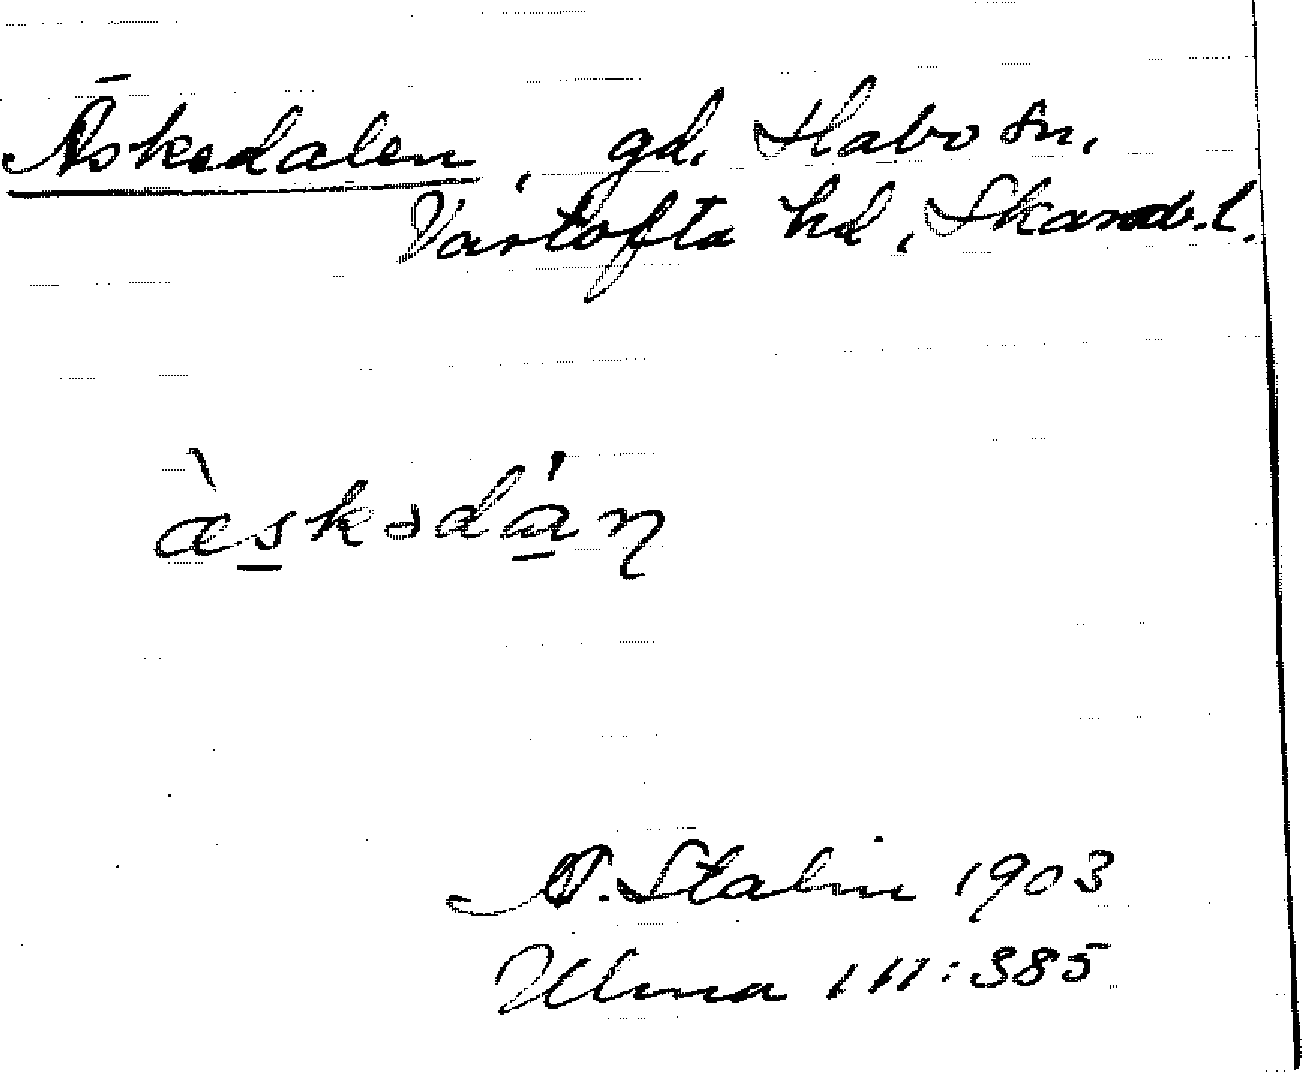 Äskedalen, gd. Habo sn,
Vartofta hd, Skarab.l.
æ̀skədán
A. Stalin 1903
Ulma 111:385